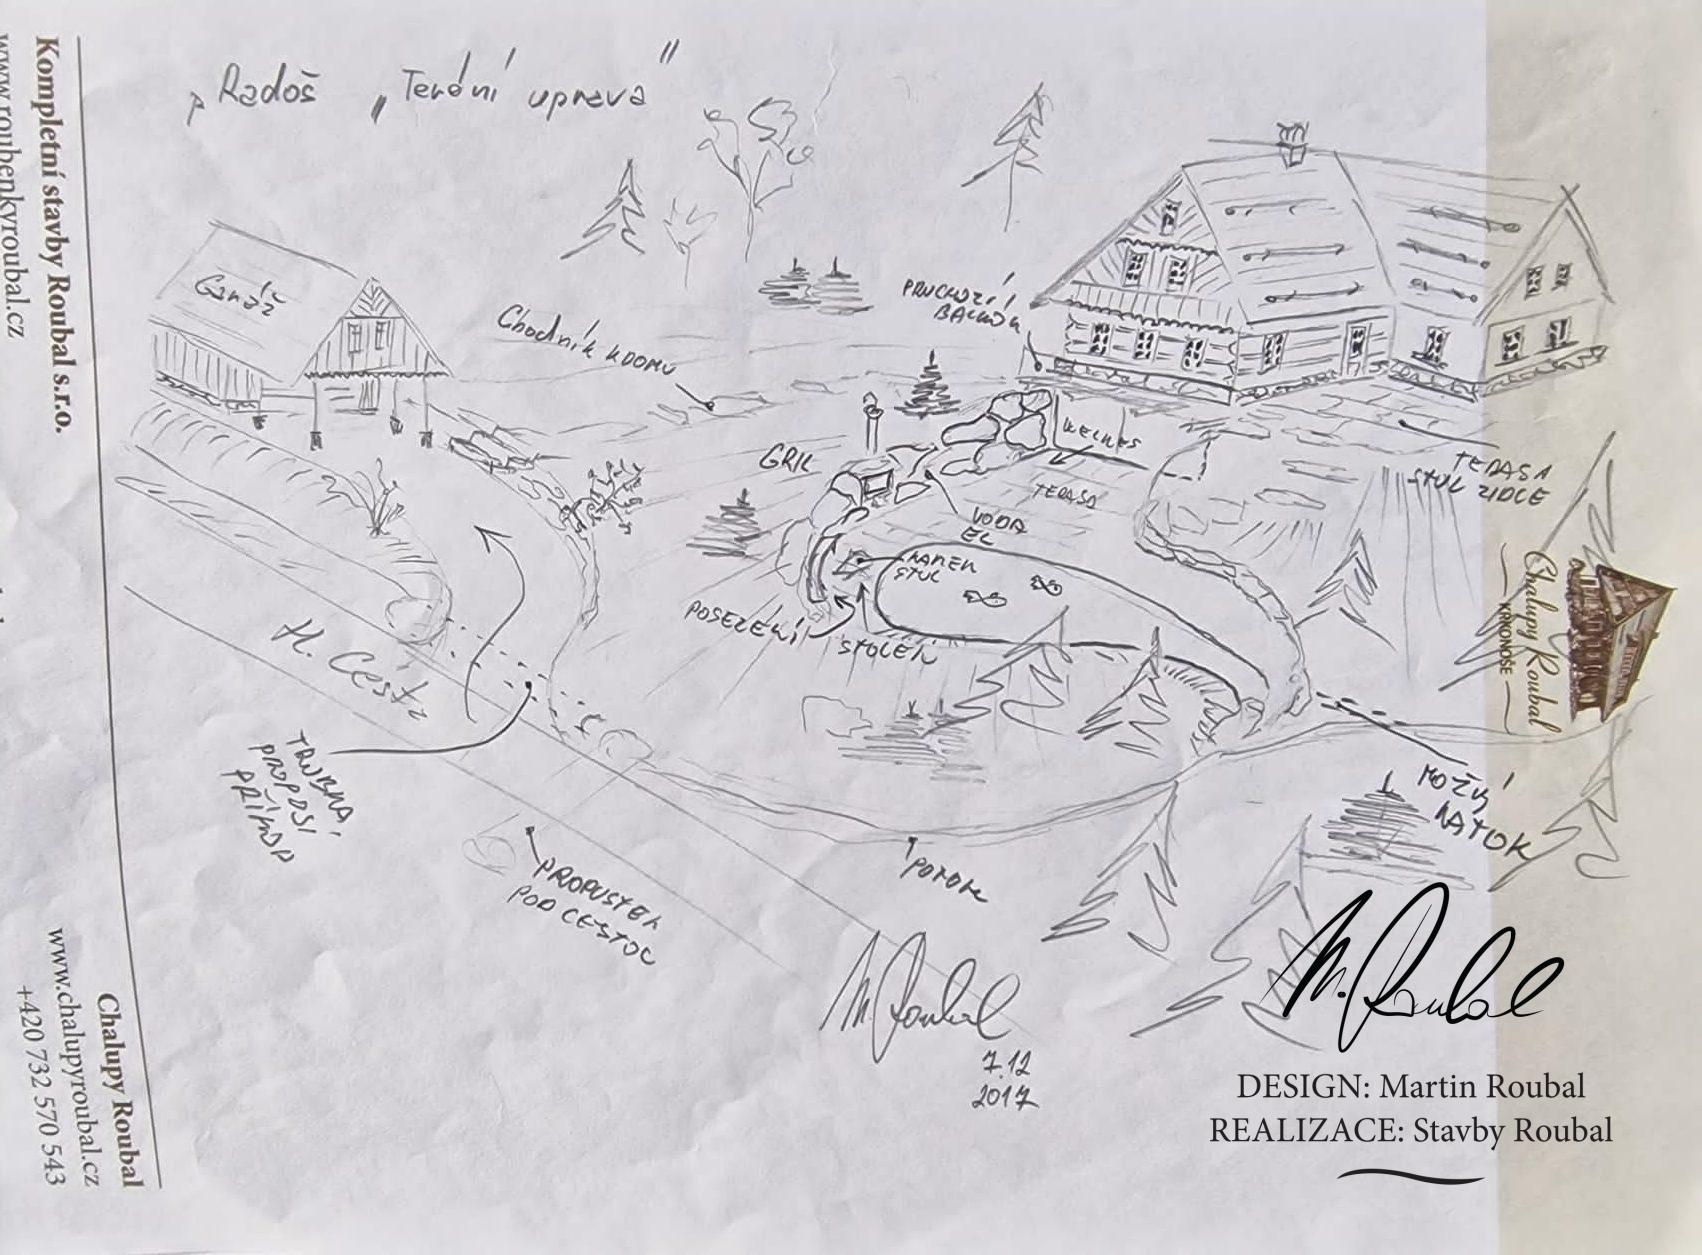 „Radoš „Terénní uprava"
Kompletní stavby Roubal s.r.o.
www.roubenkyroubal.cz
Garáž
Chodník k DOMU
PRUCHOZÍ
BALKON
GRIL
WELNES
TERASA
TERASA
STUL ZIDLE
VODA
EL
KAMEN
STUL
POSEZENÍ
STOLEK
H. Cesta
TRUBKA
PROP DSI
PŘÍKOP
PROPUSTEK
POD CESTOU
POTOK
MOŽNÝ
NATOK
Chalupy Roubal
KRKONOŠE
M. Roubal
7.12
2017
M. Roubal
DESIGN: Martin Roubal
REALIZACE: Stavby Roubal
Chalupy Roubal
www.chalupyroubal.cz
+420 732 570 543